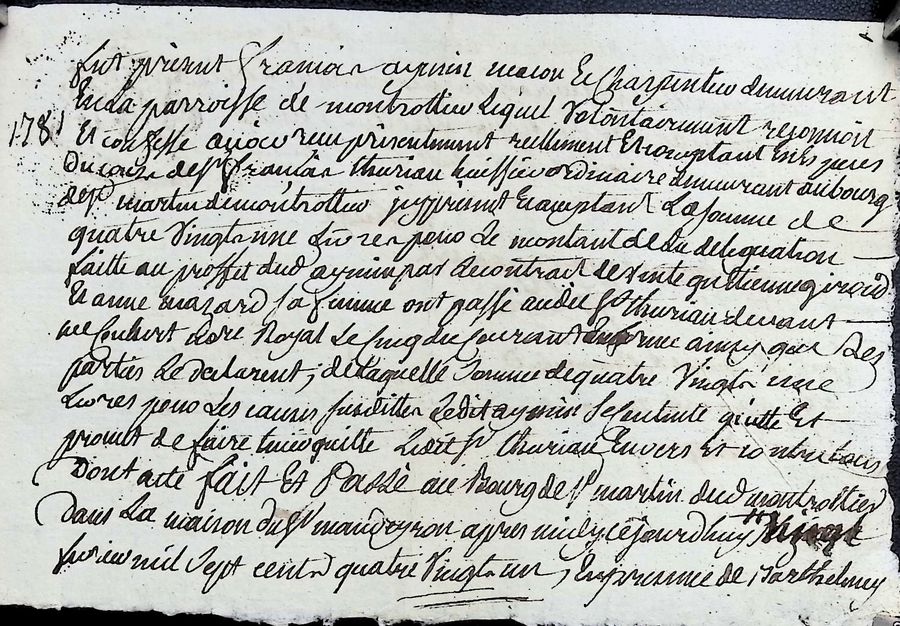 fut présent François aymin macon Et Charpentier demeurant
En La parroisse de montrottier Lequel Volontairement reconnoit
1781
Et confesse avoir reçu présentement reellement Et comptant En Espèces
Du cours de Sr François thurian huissier ordinaire demeurant au bourg
de St martin de montrottier icy présent Et acceptant La Somme de
quatre Vingt une Livres pour Le montant de La délégation
faitte au proffit dud aymin par Le contrat de vente qu'Etienne giroud
Et anne mazard Sa femme ont passé audit Sr thurian devant
me Coubert no.re Royal Le cinq du Courant ainsy que Les
parties Le declarent, de Laquelle Somme de quatre Vingt une
Livres pour Les causes susdittes Ledit aymin Se Contente quitte Et
promet de faire tenir quitte Ledit Sr thurian Envers Et contre tous
Dont acte fait Et Passé au Bourg de St martin dud montrottier
Dans La maison du Sr apres midy cejourdhuy Vingt
mil Sept cents quatre Vingt un, En présence de Barthelemy